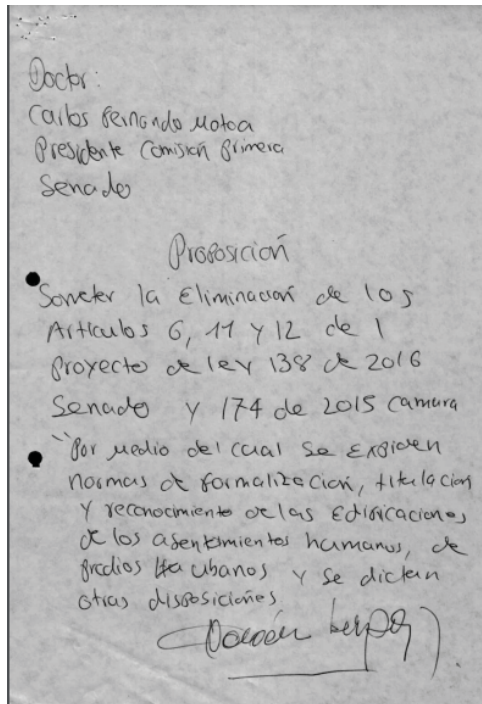 Doctor:
Carlos Fernando Motoa
Presidente Comisión Primera
Senado
Proposición
Someter la Eliminación de los
Artículos 6, 11 y 12 de l
proyecto de ley 138 de 2016
Senado y 174 de 2015 camara
"Por medio del cual se Expiden
normas de formalización, titulación
y reconocimiento de las Edificaciones
de los asentamientos humanos, de
predios y se dictan
otras disposiciones